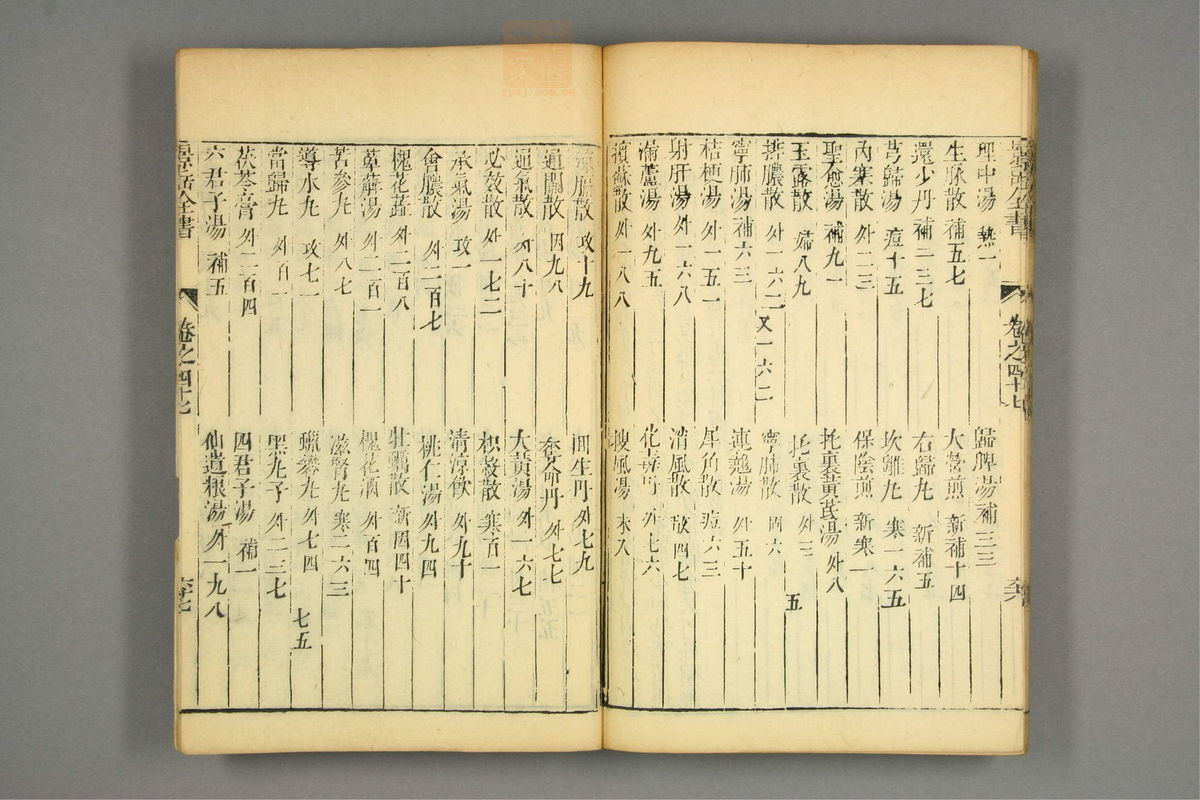 景岳全書 卷之四十七
理中湯 熱一 歸脾湯 補三三
生脉散 補五七 大營煎 新補十四
還少丹 補一三七 右歸丸 新補五
芎歸湯 痘十五 坎離丸 寒一六五
內塞散 外二三 保陰煎 新寒一
聖愈湯 補九一 托裏黃芪湯 外八
玉露散 婦八九 托裏散 外三五
排膿散 外一六二 又一六二 寧肺散 固六
寧肺湯 補六三 連翹湯 外五十
桔梗湯 外一五一 犀角散 痘六三
射肝湯 外一六八 消風散 散四七
漏蘆湯 外九五 花毒丹 外七六
攢蘇散 外一八八 搜風湯 未入
濃膿散 攻十九 回生丹 外七九
通關散 因九八 奪命丹 外七七
通氣散 外八十 大黃湯 外一六七
必效散 外一七二 枳殼散 寒百一
承氣湯 攻一 清涼飲 外九十
會膿散 外二百七 桃仁湯 外九四
槐花蕋 外二百八 牡蠣散 新因四十
萆薢湯 外二百一 槐花酒 外百四
苦參丸 外八七 滋腎丸 寒二六三
導水丸 攻七一 蠟礬丸 外七四 七五
當歸丸 外百十 黑丸子 外二三七
茯苓膏 外二百四 四君子湯 補一
六君子湯 補五 仙遺粮湯 外一九八
景岳全書 卷之四十七